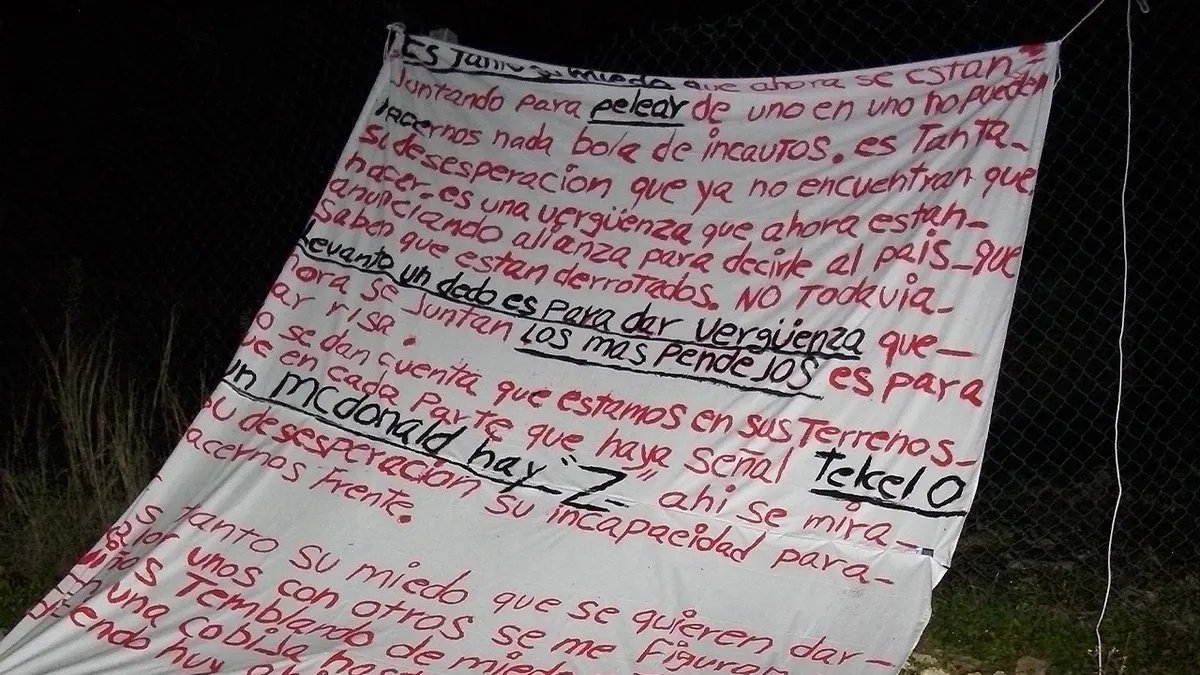 ¡Es tanto su miedo que ahora se estan-
Juntando para pelear de uno en uno no pueden
hacernos nada bola de incautos. es Tanta-
su desesperacion que ya no encuentran que
hacer. es una vergüenza que ahora estan-
anunciando alianza para decirle al pais-que
saben que estan derrotados. NO Todavia-
Levanto un dedo es para dar vergüenza que-
hora se Juntan Los mas pendejos es para
ar risa.
o se dan cuenta que estamos en sus Terrenos-
ue en cada Parte que haya señal Telcel O
un mcdonald hay "Z" ahi se mira-
su desesperacion su incapacidad para-
acernos Frente.
s tanto su miedo que se quieren dar-
alor unos con otros se me Figuran
niños Temblando de miedo
en una cobija
diciendo huy